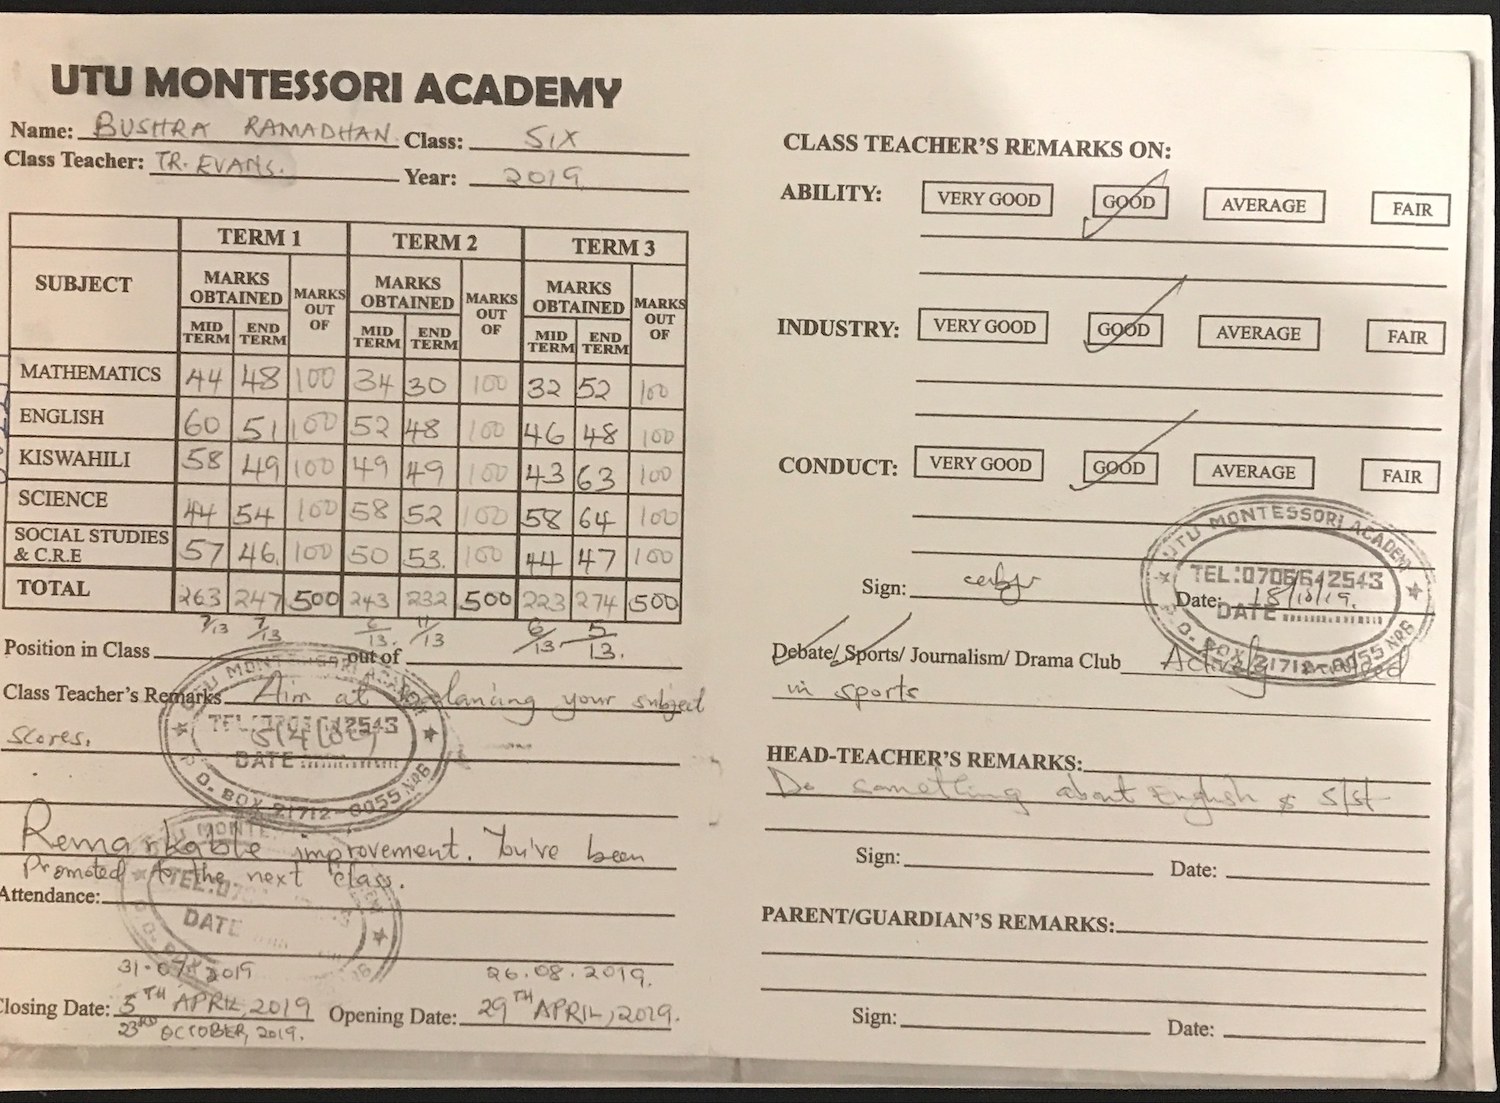 UTU MONTESSORI ACADEMY
Name: BUSHRA RAMADHAN. Class: SIX
Class Teacher: TR. EVANS. Year: 2019
SUBJECT TERM 1 TERM 2 TERM 3
MARKS OBTAINED MARKS OUT OF MARKS OBTAINED MARKS OUT OF MARKS OBTAINED MARKS OUT OF
MID TERM END TERM MID TERM END TERM MID TERM END TERM
MATHEMATICS 44 48 100 34 30 100 32 52 100
ENGLISH 60 51 100 52 48 100 46 48 100
KISWAHILI 58 49 100 49 49 100 43 63 100
SCIENCE 44 54 100 58 52 100 58 64 100
SOCIAL STUDIES & C.R.E 57 46. 100 50 53. 100 44 47 100
TOTAL 263 247 500 243 232 500 223 274 500
7/13 7/13 6/13. 11/13 6/13 5/13.
Position in Class out of
Class Teacher's Remarks Aim at balancing your subject
scores.
UTU MONTESSORI ACADEMY
TEL:0706642543
DATE
P.O. BOX 21712-0055 NRB
Remarkable improvement. You've been
Promoted to the next class.
Attendance:
DATE
31-07-2019 26.08.2019.
Closing Date: 5TH APRIL, 2019 Opening Date: 29TH APRIL, 2019.
23RD OCTOBER, 2019.
CLASS TEACHER'S REMARKS ON:
ABILITY: VERY GOOD GOOD AVERAGE FAIR
INDUSTRY: VERY GOOD GOOD AVERAGE FAIR
CONDUCT: VERY GOOD GOOD AVERAGE FAIR
UTU MONTESSORI ACADEMY
TEL:0706642543
DATE
P.O. BOX 21712-0055 NRB
Sign: Date: 18/10/19.
Debate/ Sports/ Journalism/ Drama Club Actively
in sports
HEAD-TEACHER'S REMARKS:
Do something about English & S/St
Sign: Date:
PARENT/GUARDIAN'S REMARKS:
Sign: Date: